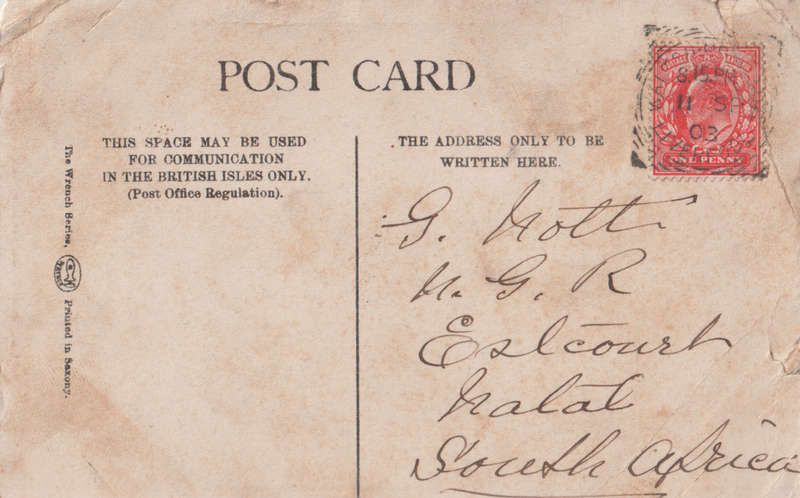 POST CARD
THIS SPACE MAY BE USED
FOR COMMUNICATION
IN THE BRITISH ISLES ONLY.
(Post Office Regulation).
THE ADDRESS ONLY TO BE
WRITTEN HERE.
The Wrench Series,
Printed in Saxony.
8 15 PM
11 SP
03
ONE PENNY
G. Nott
N. G. R
Estcourt
Natal
South Africa